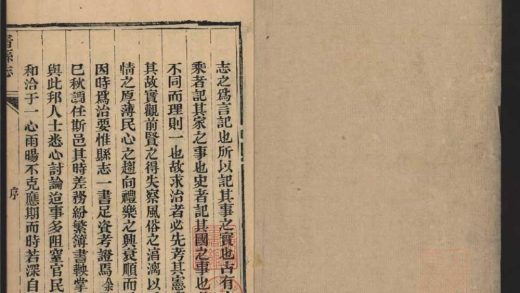 志之爲言記也所以記其事之實也古有
乘者記其家之事也史者記其國之事也
不同而理則一也故求治者必先考其憲
其故實觀前賢之得失察風俗之淳漓以
情之厚薄民心之趨向禮樂之興衰順而
因時爲治要惟縣志一書足資考證焉
巳秋調任斯邑其時差務紛繁簿書鞅掌
與此邦人士悉心討論迨事多阻窒官民
和洽于一心雨暘不克應期而時若深自
縣志
序